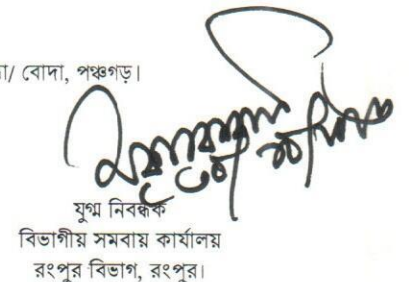 া/ বোদা, পঞ্চগড়।
যুগ্ম নিবন্ধক
বিভাগীয় সমবায় কার্যালয়
রংপুর বিভাগ, রংপুর।